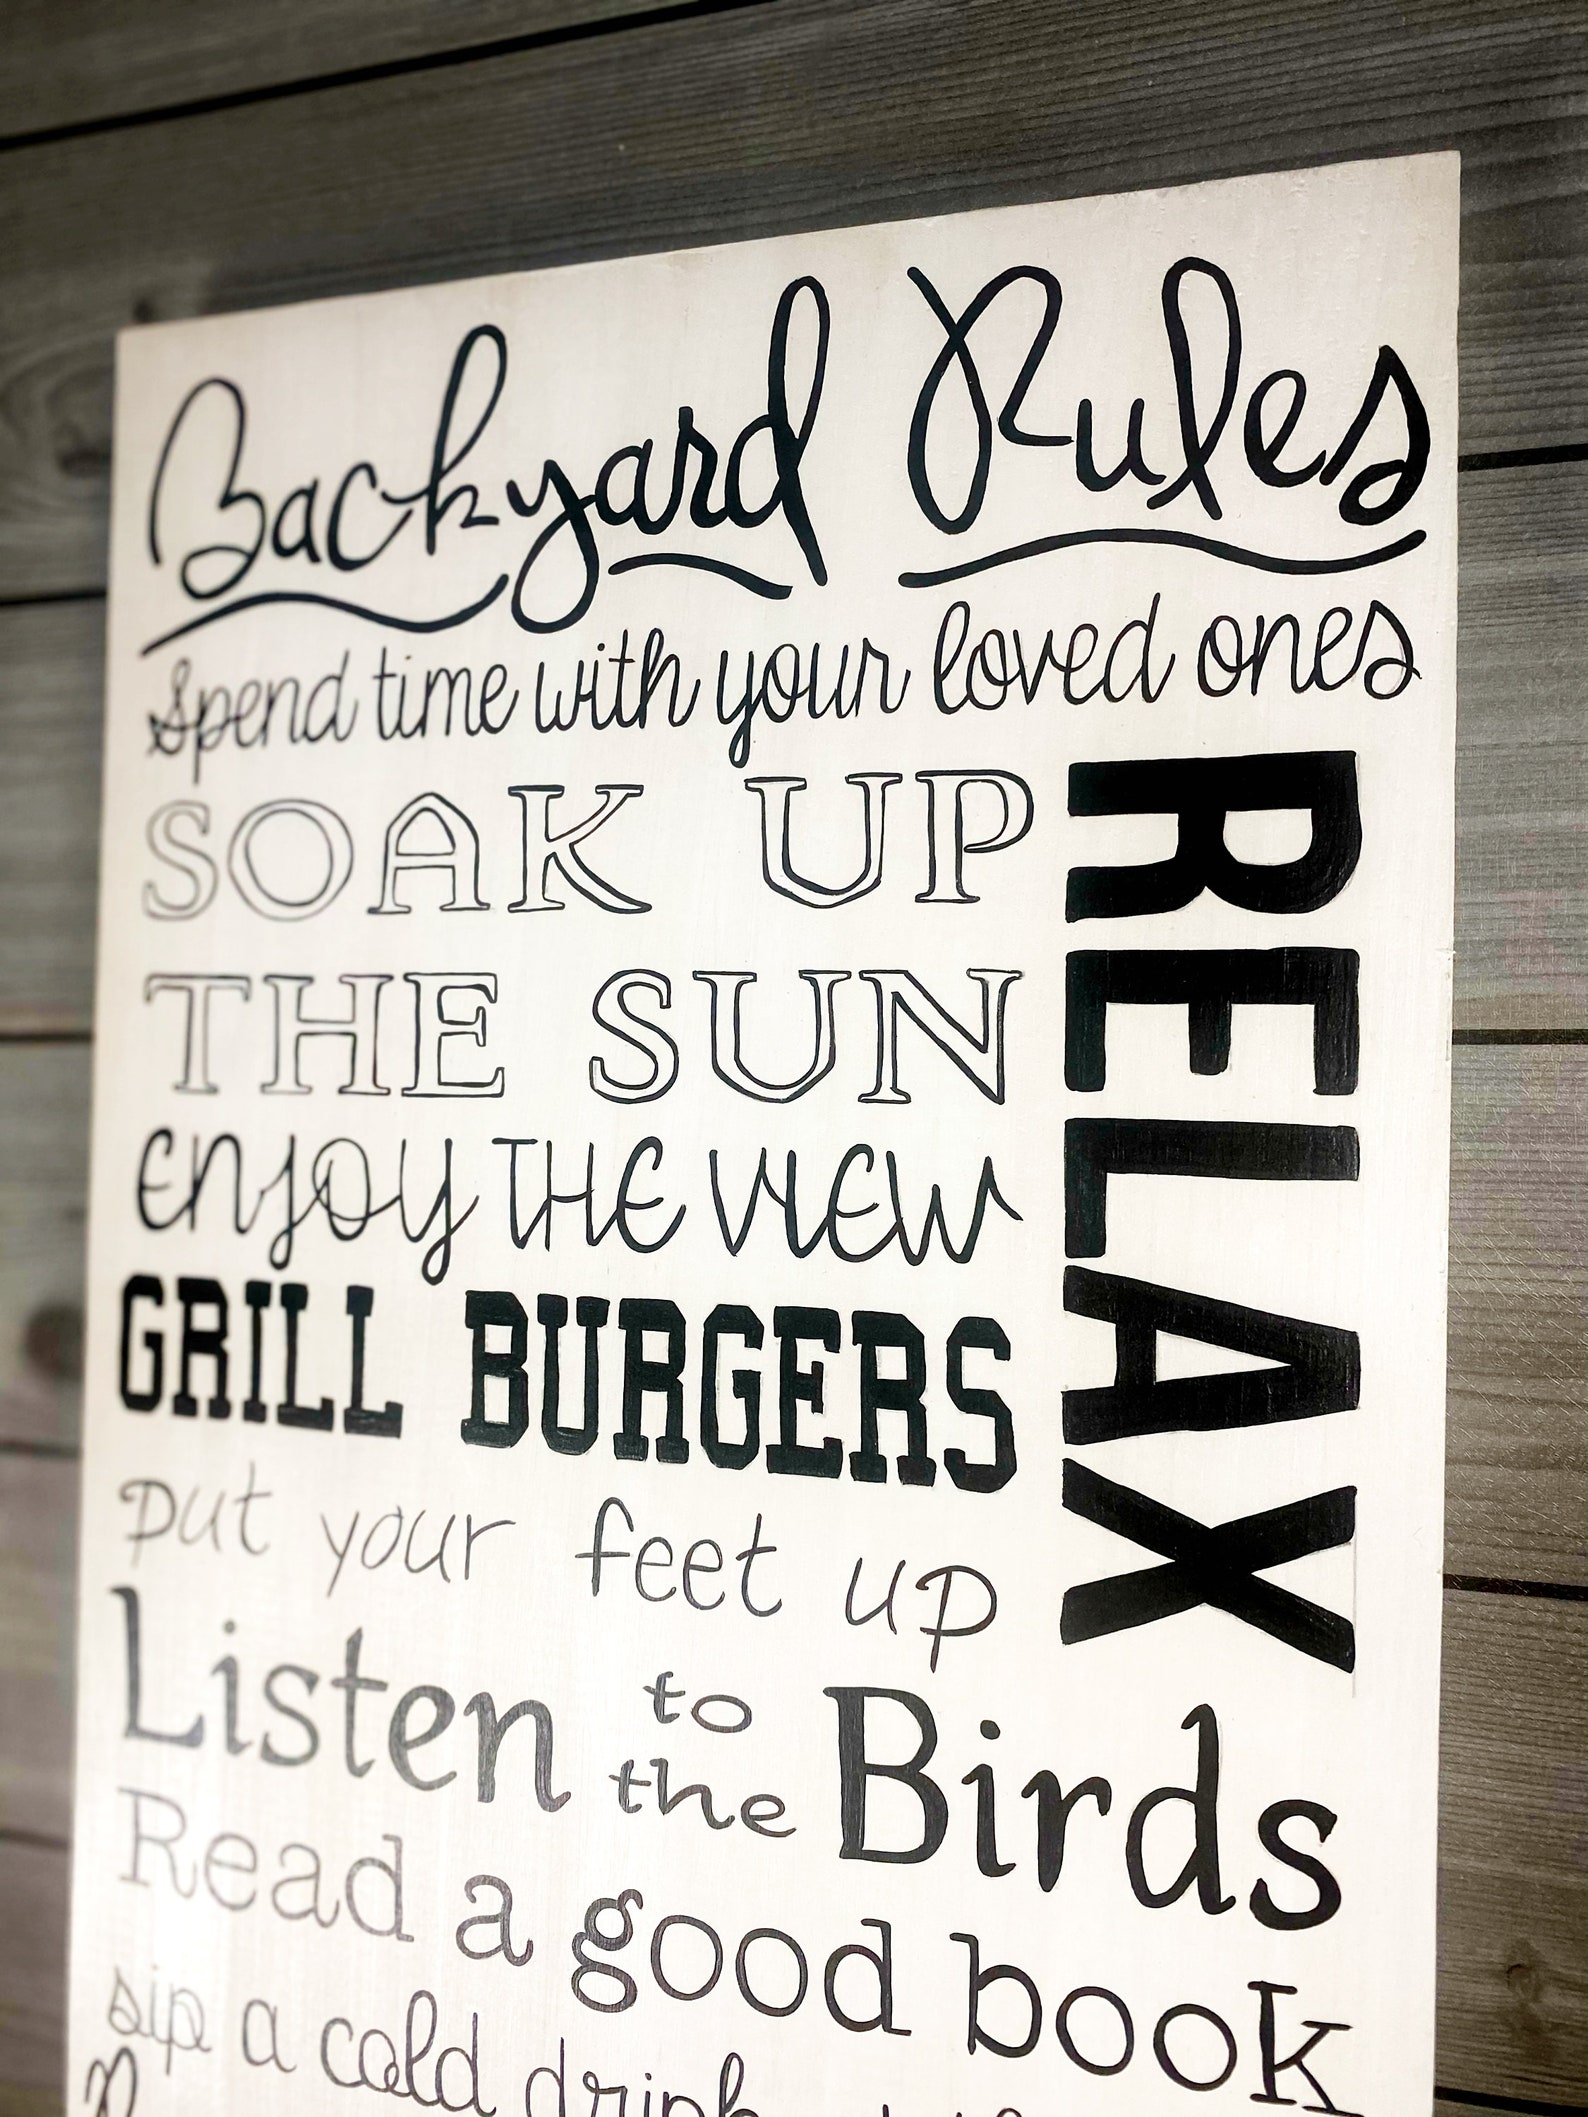 Backyard Rules
Spend time with your loved ones
SOAK UP
THE SUN
RELAX
enjoy THE VIEW
GRILL BURGERS
put your feet up
Listen to the Birds
Read a good book
sip a cold